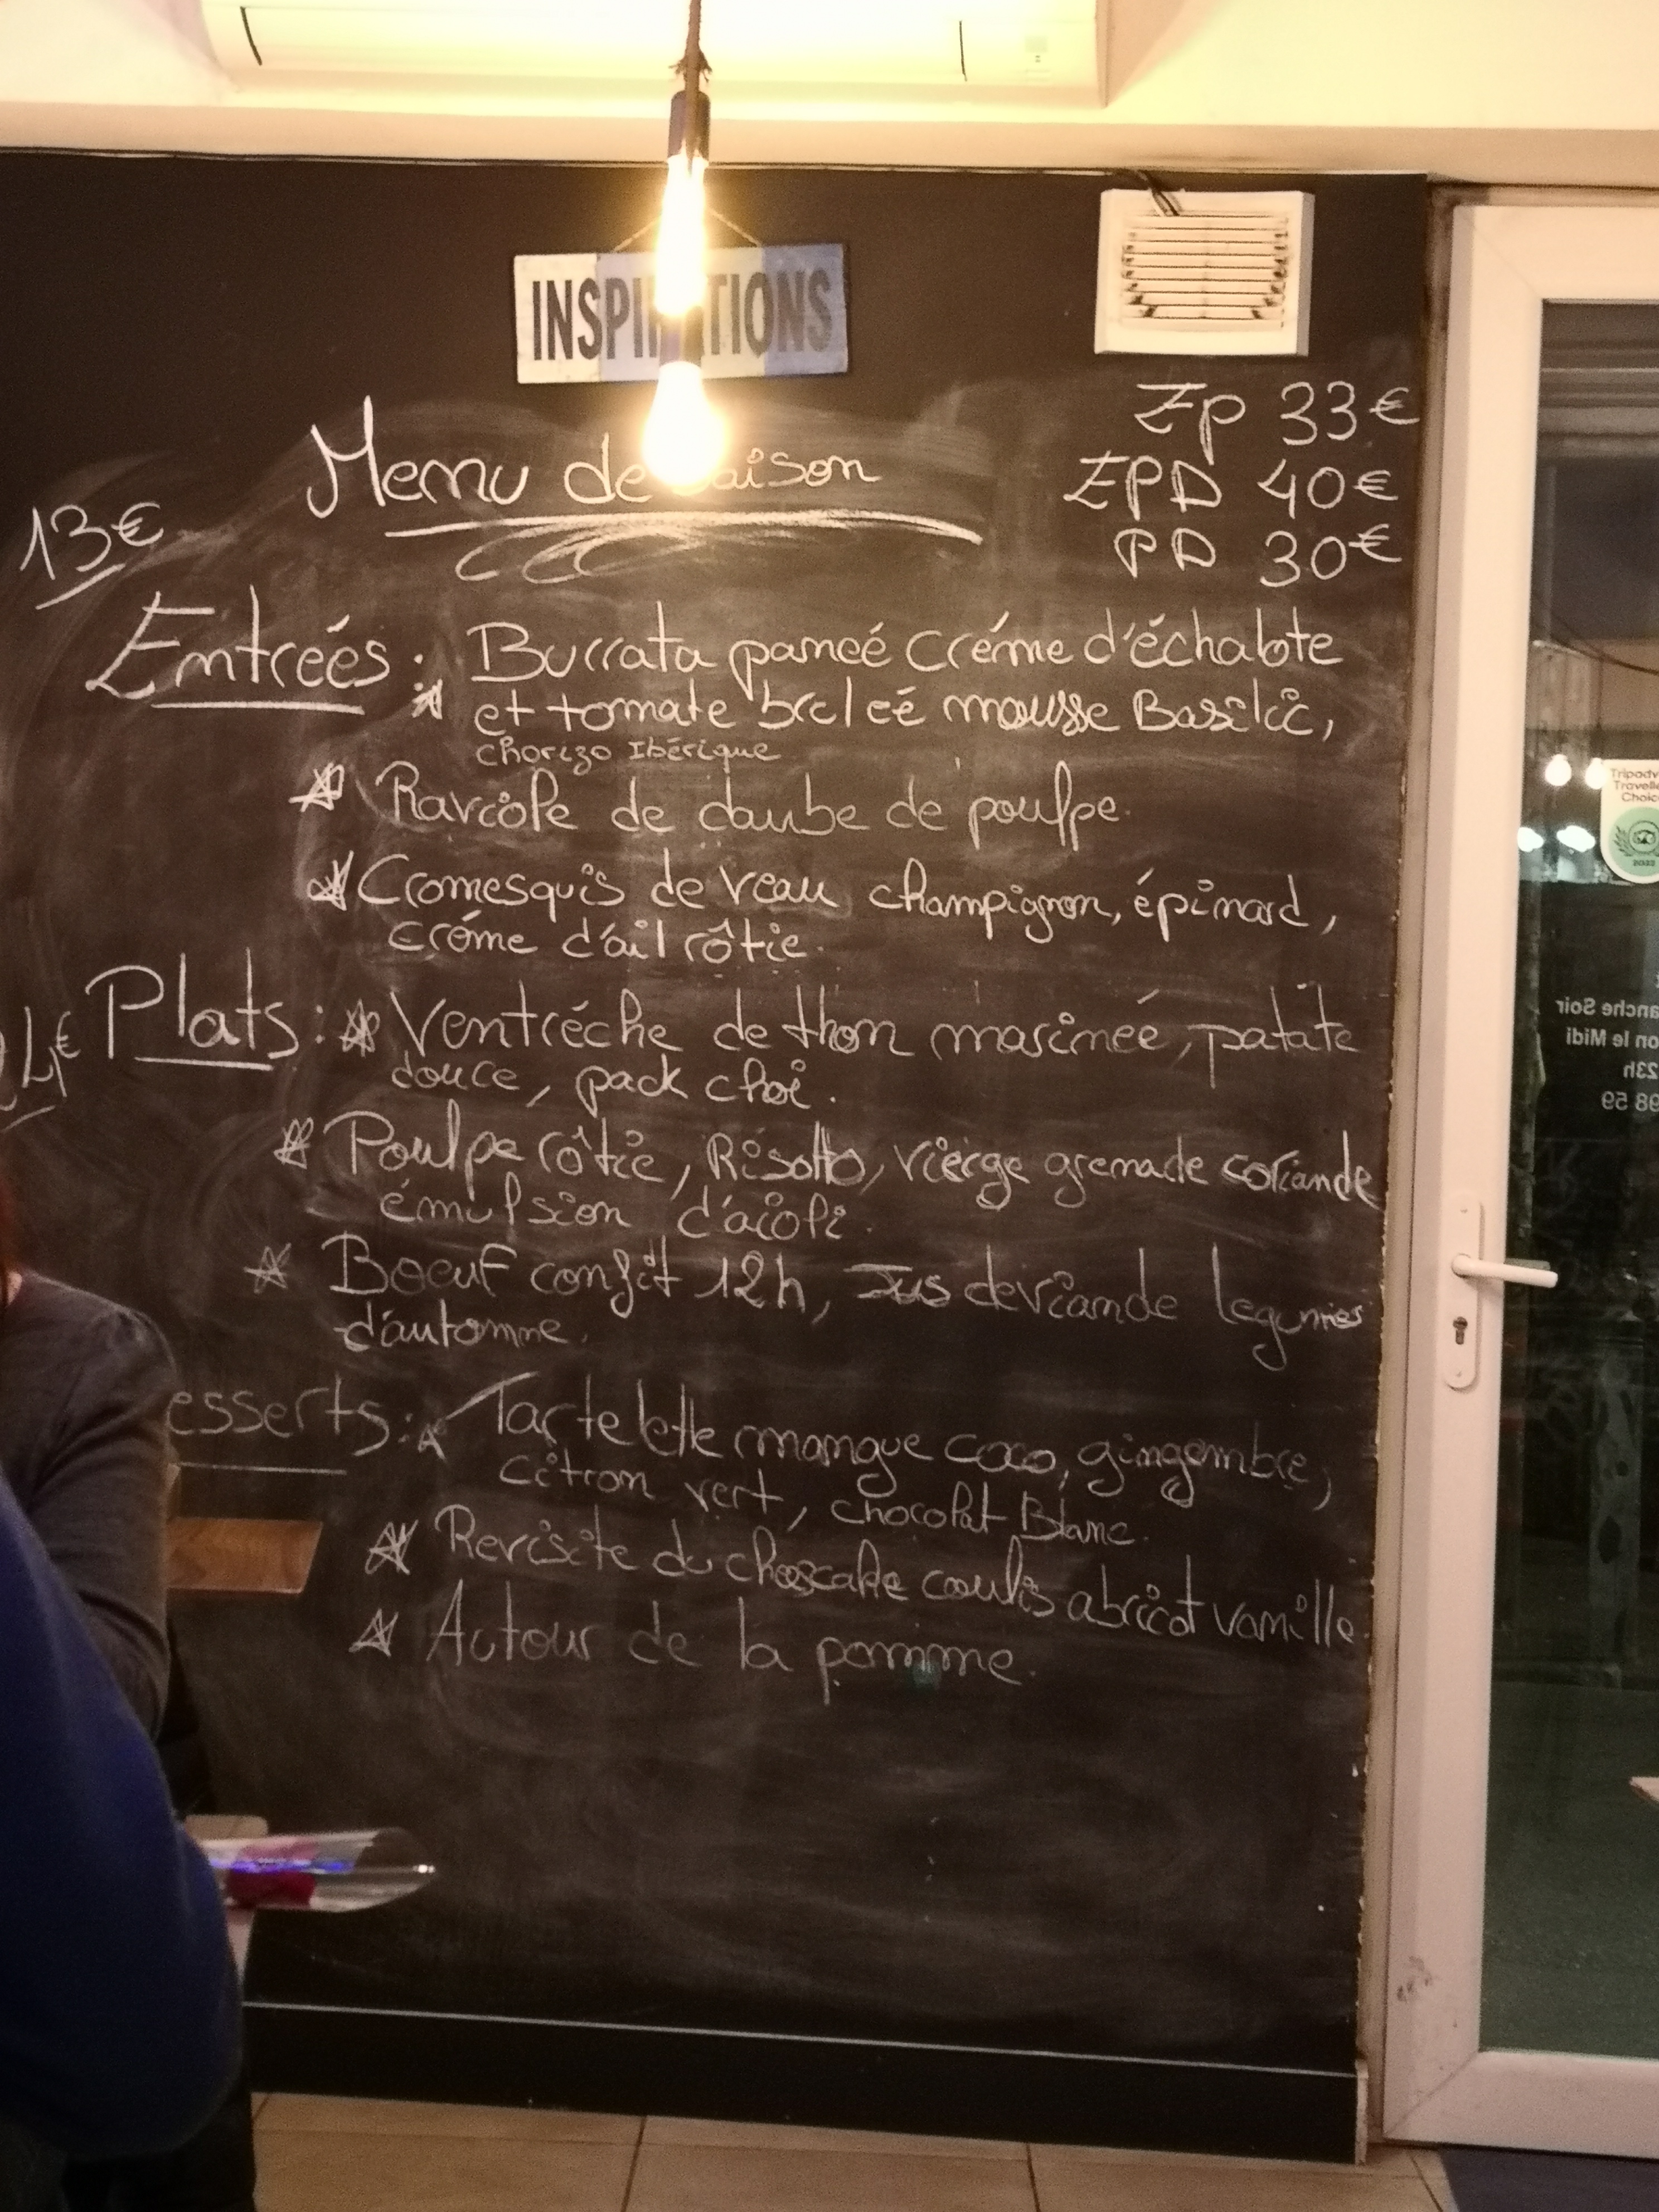 INSPIRATIONS
EP 33€
Menu de saison
EPD 40€
13€
PD 30€
Entrées : Burrata paneé créme d'échalote
et tomate bruleé mousse Basilic,
chorizo Ibérique
Raviole de daube de poulpe.
Cromesquis de veau champignon, épinard,
créme d'ail rôtie.
4€
Plats : Ventréche de thon marineé, patate
douce, pack choi.
Poulpe rôtie, Risotto, vierge grenade coriande
émulsion d'aioli.
Boeuf confit 12h, Jus de viande legumes
d'automne.
esserts : Tartelette mangue coco, gingembre,
citron vert, chocolat Blanc.
Revisite du cheescake coulis abricot vanille.
Autour de la pomme.
Tripadv
Travelle
Choic
anche Soir
on le Midi
23h
98 59